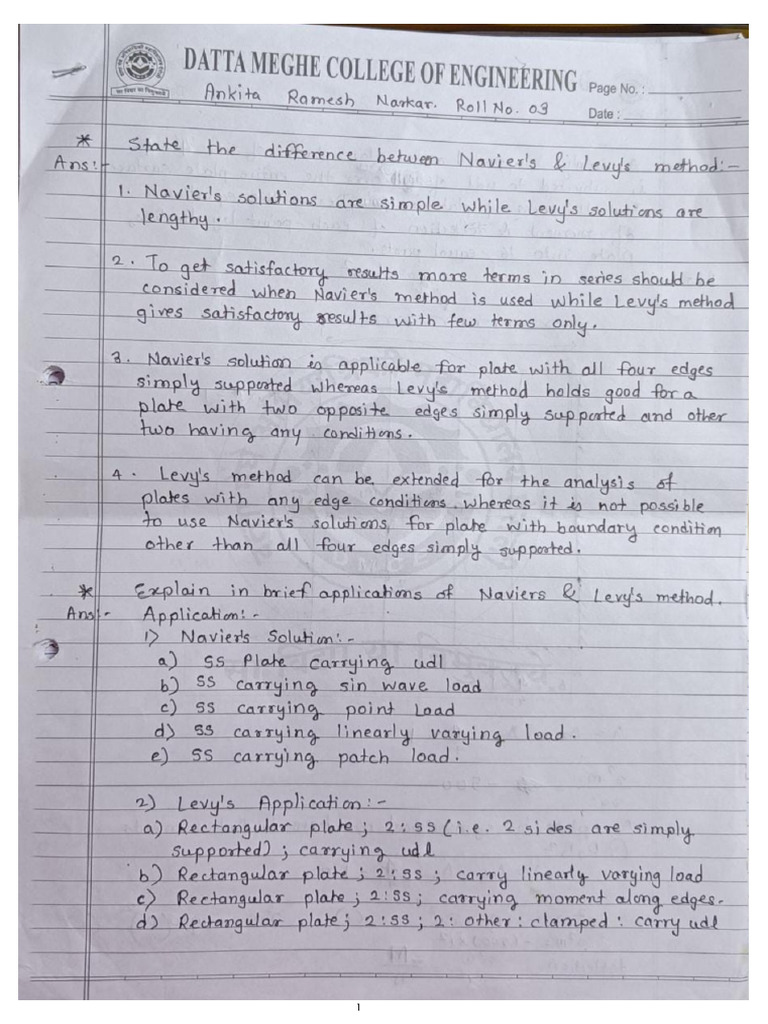 DATTA MEGHE COLLEGE OF ENGINEERING
Page No. :
Ankita Ramesh Narkar. Roll No. 09
Date :
* State the difference between Navier's & Levy's method:-
Ans:-
1. Navier's solutions are simple while Levy's solutions are
lengthy.
2. To get satisfactory results more terms in series should be
considered when Navier's method is used while Levy's method
gives satisfactory results with few terms only.
3. Navier's solution is applicable for plate with all four edges
simply supported whereas Levy's method holds good for a
plate with two opposite edges simply supported and other
two having any conditions.
4. Levy's method can be extended for the analysis of
plates with any edge conditions whereas it is not possible
to use Navier's solutions, for plate with boundary condition
other than all four edges simply supported.
* Explain in brief applications of Naviers & Levy's method.
Ans:- Application:-
1) Navier's Solution:-
a) SS Plate carrying udl
b) SS carrying sin wave load
c) SS carrying point Load
d) SS carrying linearly varying load.
e) SS carrying patch load.
2) Levy's Application:-
a) Rectangular plate; 2:SS (i.e. 2 sides are simply
supported); carrying udl
b) Rectangular plate; 2:SS; carry linearly varying load
c) Rectangular plate; 2:SS; carrying moment along edges.
d) Rectangular plate; 2:SS; 2: other: clamped: carry udl
1